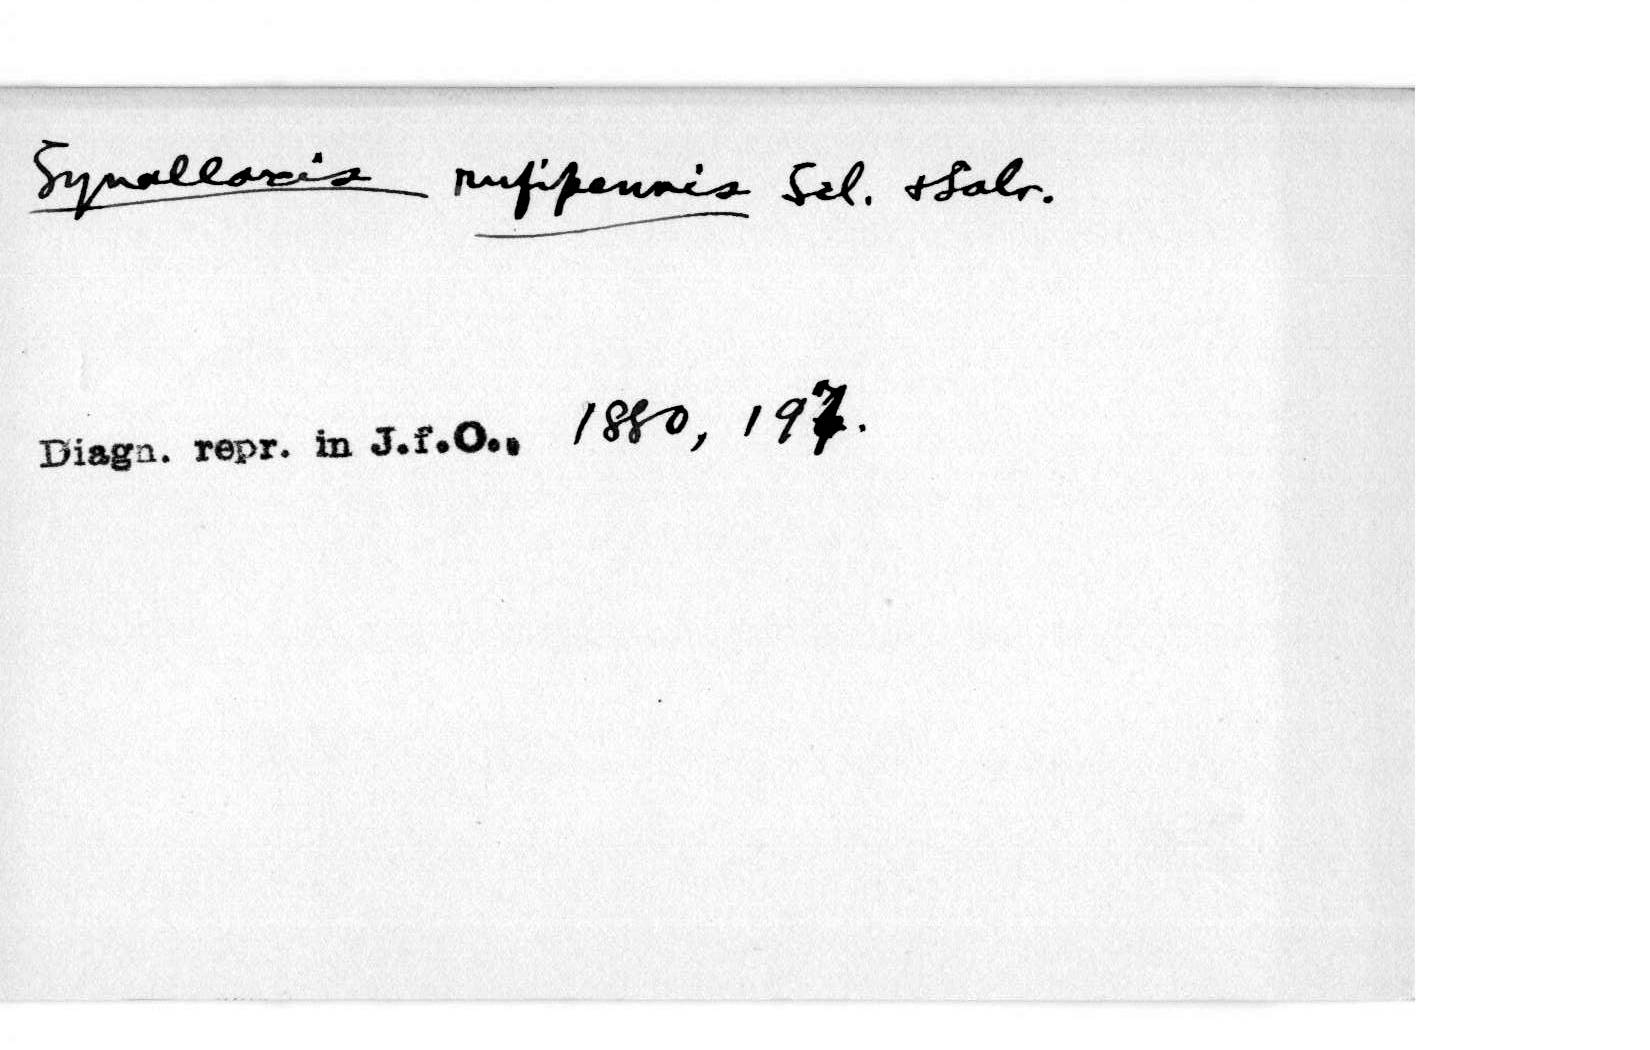 Synallaxis rufipennis Scl. & Salv.
Diagn. repr. in J.f.O., 1880, 197.